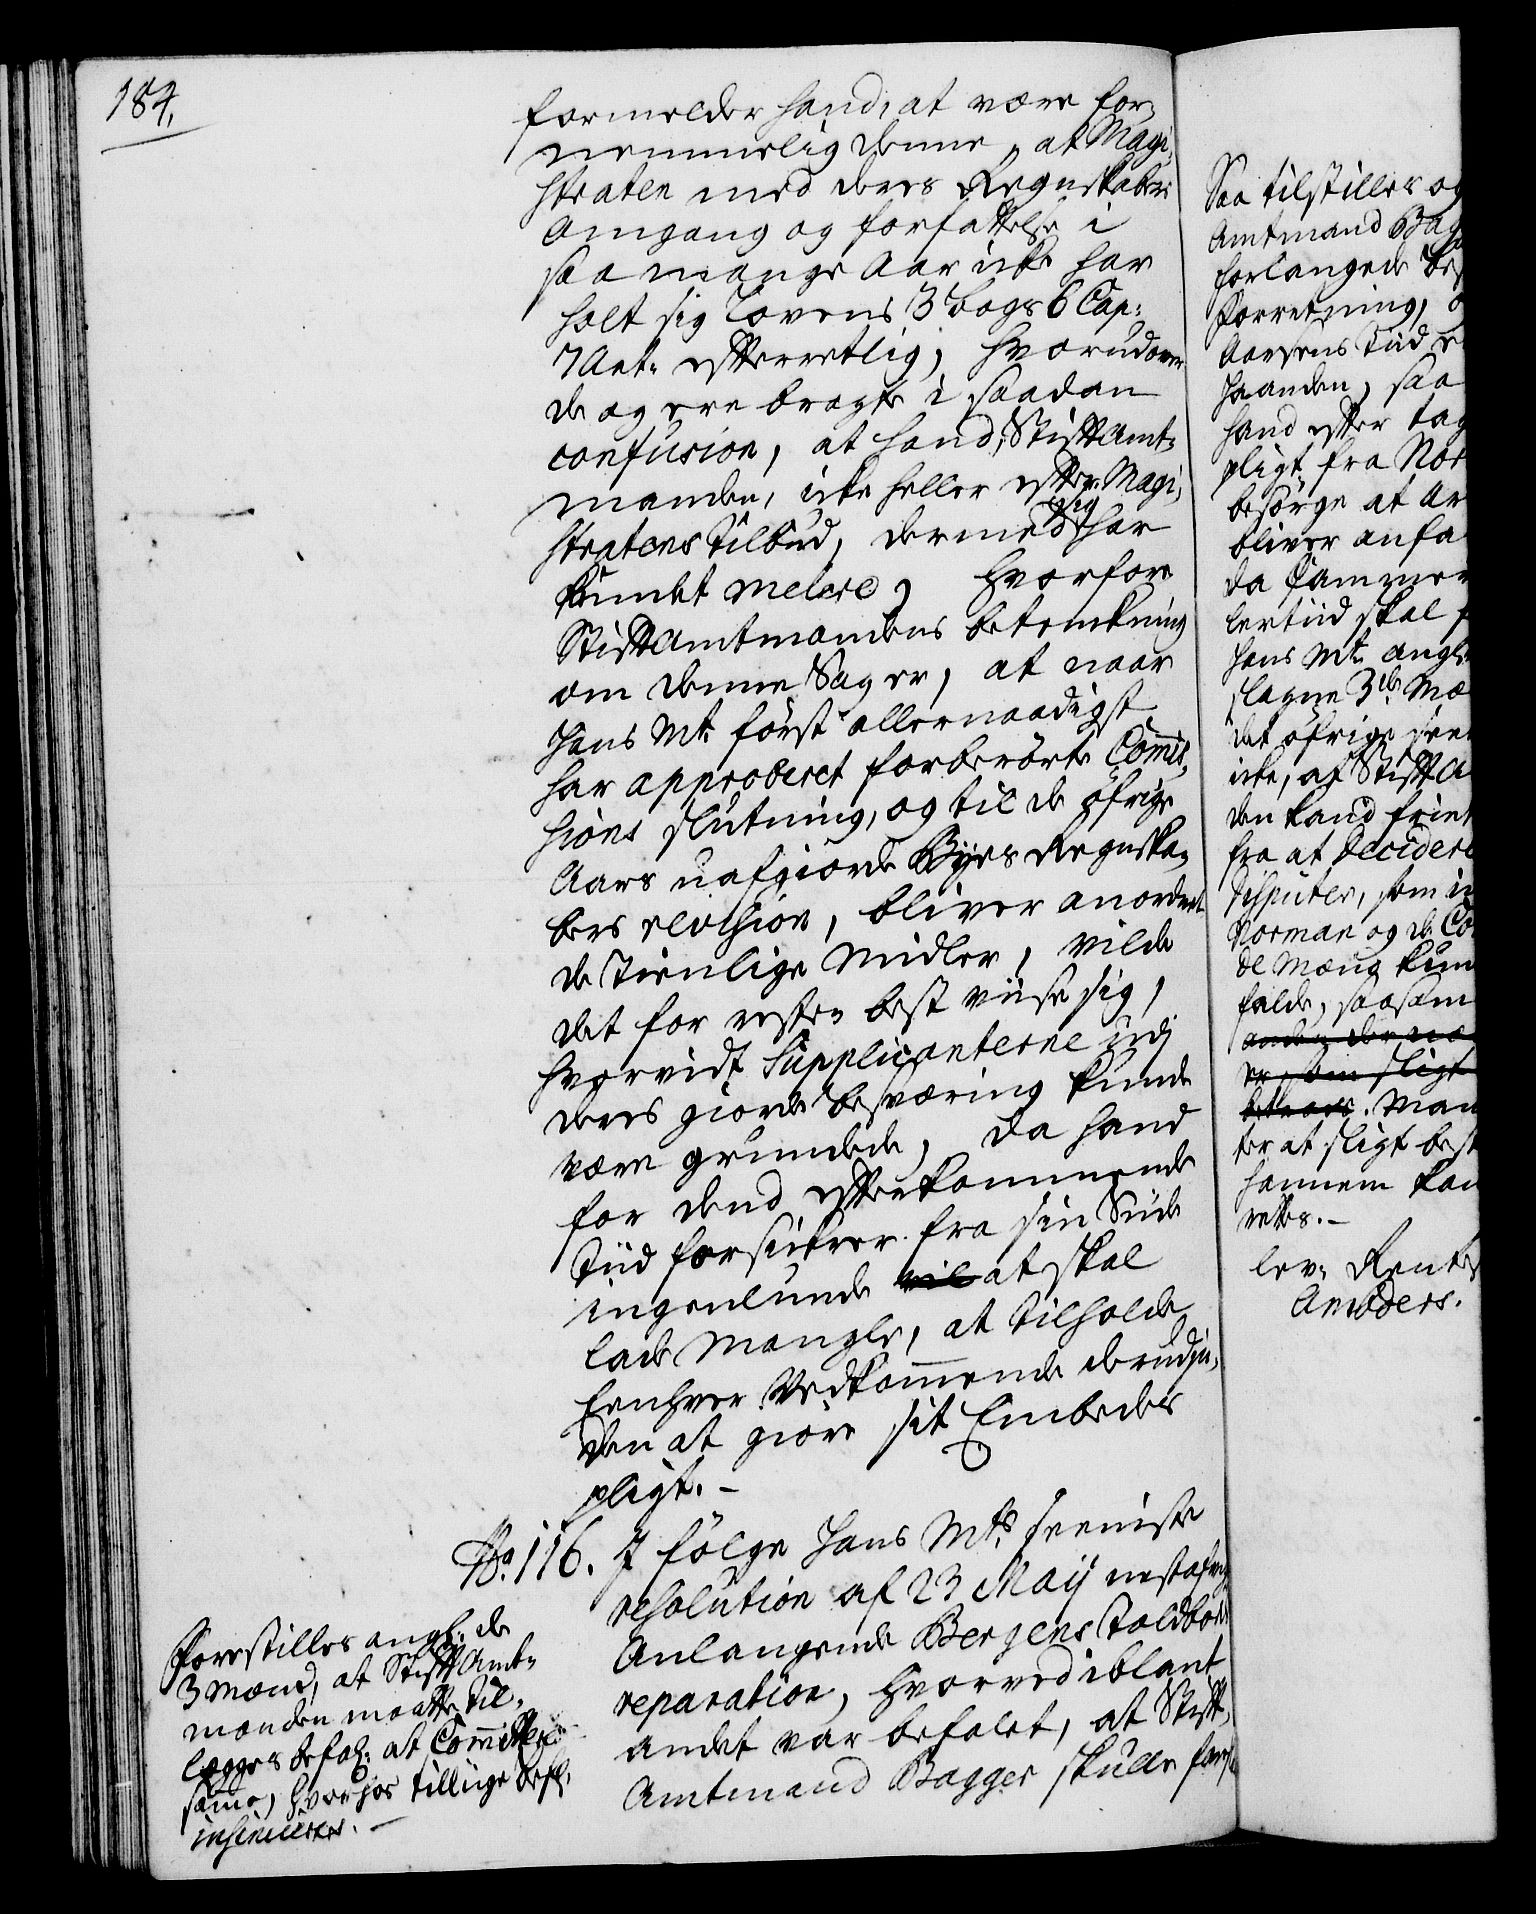 184.
formelder hand, at være for-
nemmelig denne, at Magi-
straten med deres Regnskabers
Omgang og forfattelse i
saa mange Aar icke har
holt sig Lovens 3 bogs 6 Cap:
7 Art: efterretlig, hvorudover
de og ere bragte i saadan
confusion, at hand, Stiftamt-
manden, icke heller efter Magi-
stratens Tilbud, dermed sig har
kundet melere, hvorfore
Stiftamtmandens betenkning
om denne Sag er, at naar
Hans Mt: först allernaadigst
har approberet forberörte Commis-
sions slutning, og til de öfrige
Aars uafgiorde Byes Regnska-
bers revision, bliver anordnet
de tienlige Midler, vilde
det for resten best viise sig,
hvorvidt Supplicanterne udj
deres giorde besværing kunde
være grundede, da hand
for dend efterkommende
Tiid forsikrer fra sin Siide
ingenlunde vil at skal
lade mangle, at tilholde
Eenhver Vedkommende derudj-
den at giöre sit Embedes
pligt. -
No. 116. J fölge Hans Mts. seeniste
resolution af 23 Maij nestafvigt
Anlangende Bergens Toldbods
reparation, hvorved iblant
andet var befalet, at Stift-
Amtmand Bagger skulle
Forestilles angl: de
3 Mænd, at Stiftamt-
manden maatte til-
legges befal: at Committere
samme, hvorhos tillige
insinueres. -
Saa tilstilles og
Amtmand Bag
forlangede bes
forretning,
Aarsens Tiid
Haanden, saa
hand efter tag
pligt fra Nor
besörge at Ar
bliver anfa
da Cammer
lertiid skal
Hans Mt: angl
slagne 3de Mæ
det öfrige
icke, af StiftA
den kand
fra at decidere
Disputer, som
Norman og de Co
de Mænd kun
falde, saasom
anden der
er, som sligt
betroes. Man
ter at sligt best
hannem kan
rettes. -
lev: Rente
Anöders.